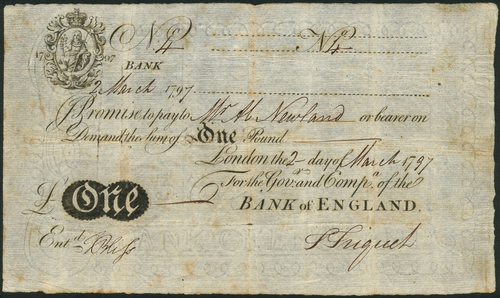 No 4 No 4
17 97
BANK
2 March 1797
I Promise to pay to Mr. Ab. Newland or bearer on
Demand the Sum of One Pound
London the 2 day of March 1797
For the Govr. and Compa. of the
£ One BANK of ENGLAND.
Entd. Bliss